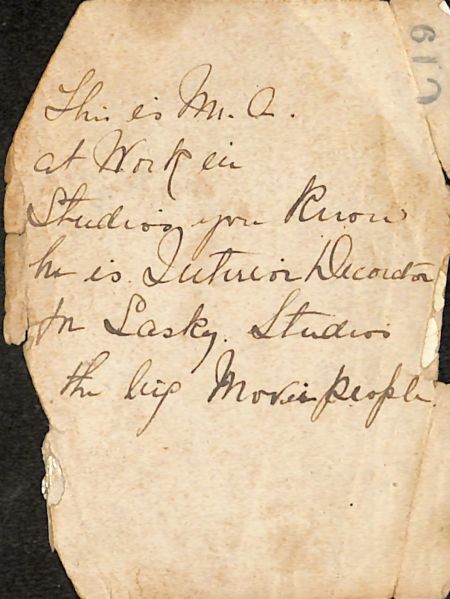 This is Mr. A.
at Work in
Studios you Know
he is Interior Decorator
for Lasky. Studios
the big Movie people.